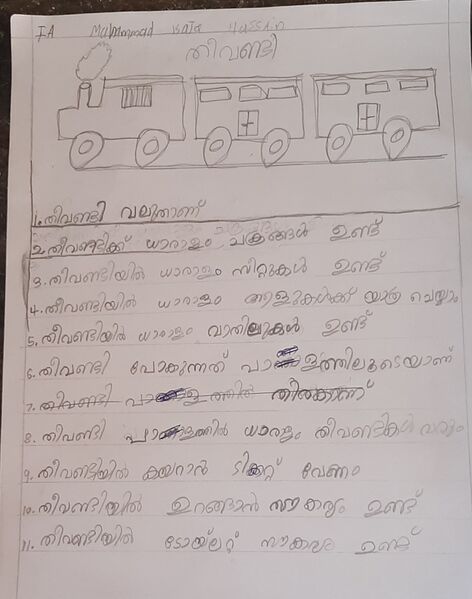 IA Muhammad Hassain
തീവണ്ടി
1. തീവണ്ടി വലുതാണ്
2. തീവണ്ടിക്ക് ധാരാളം ചക്രങ്ങൾ ഉണ്ട്
3. തീവണ്ടിയിൽ ധാരാളം സീറ്റുകൾ ഉണ്ട്
4. തീവണ്ടിയിൽ ധാരാളം ആളുകൾക്ക് യാത്ര ചെയ്യാം
5. തീവണ്ടിയിൽ ധാരാളം വാതിലുകൾ ഉണ്ട്
6. തീവണ്ടി പോകുന്നത് പാളത്തിലൂടെയാണ്
7. തീവണ്ടി
8. തീവണ്ടി പാളത്തിൽ ധാരാളം തീവണ്ടികൾ വരും
9. തീവണ്ടിയിൽ കയറാൻ ടിക്കറ്റ് വേണം
10. തീവണ്ടിയിൽ ഉറങ്ങാൻ സൗകര്യം ഉണ്ട്
11. തീവണ്ടിയിൽ ടോയ്ലറ്റ് സൗകര്യം ഉണ്ട്